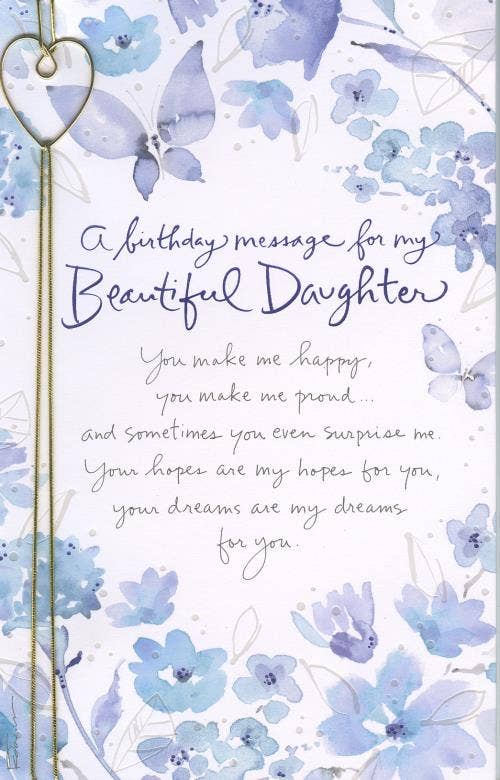 A birthday message for my
Beautiful Daughter
You make me happy,
you make me proud...
and sometimes you even surprise me.
Your hopes are my hopes for you,
your dreams are my dreams
for you.